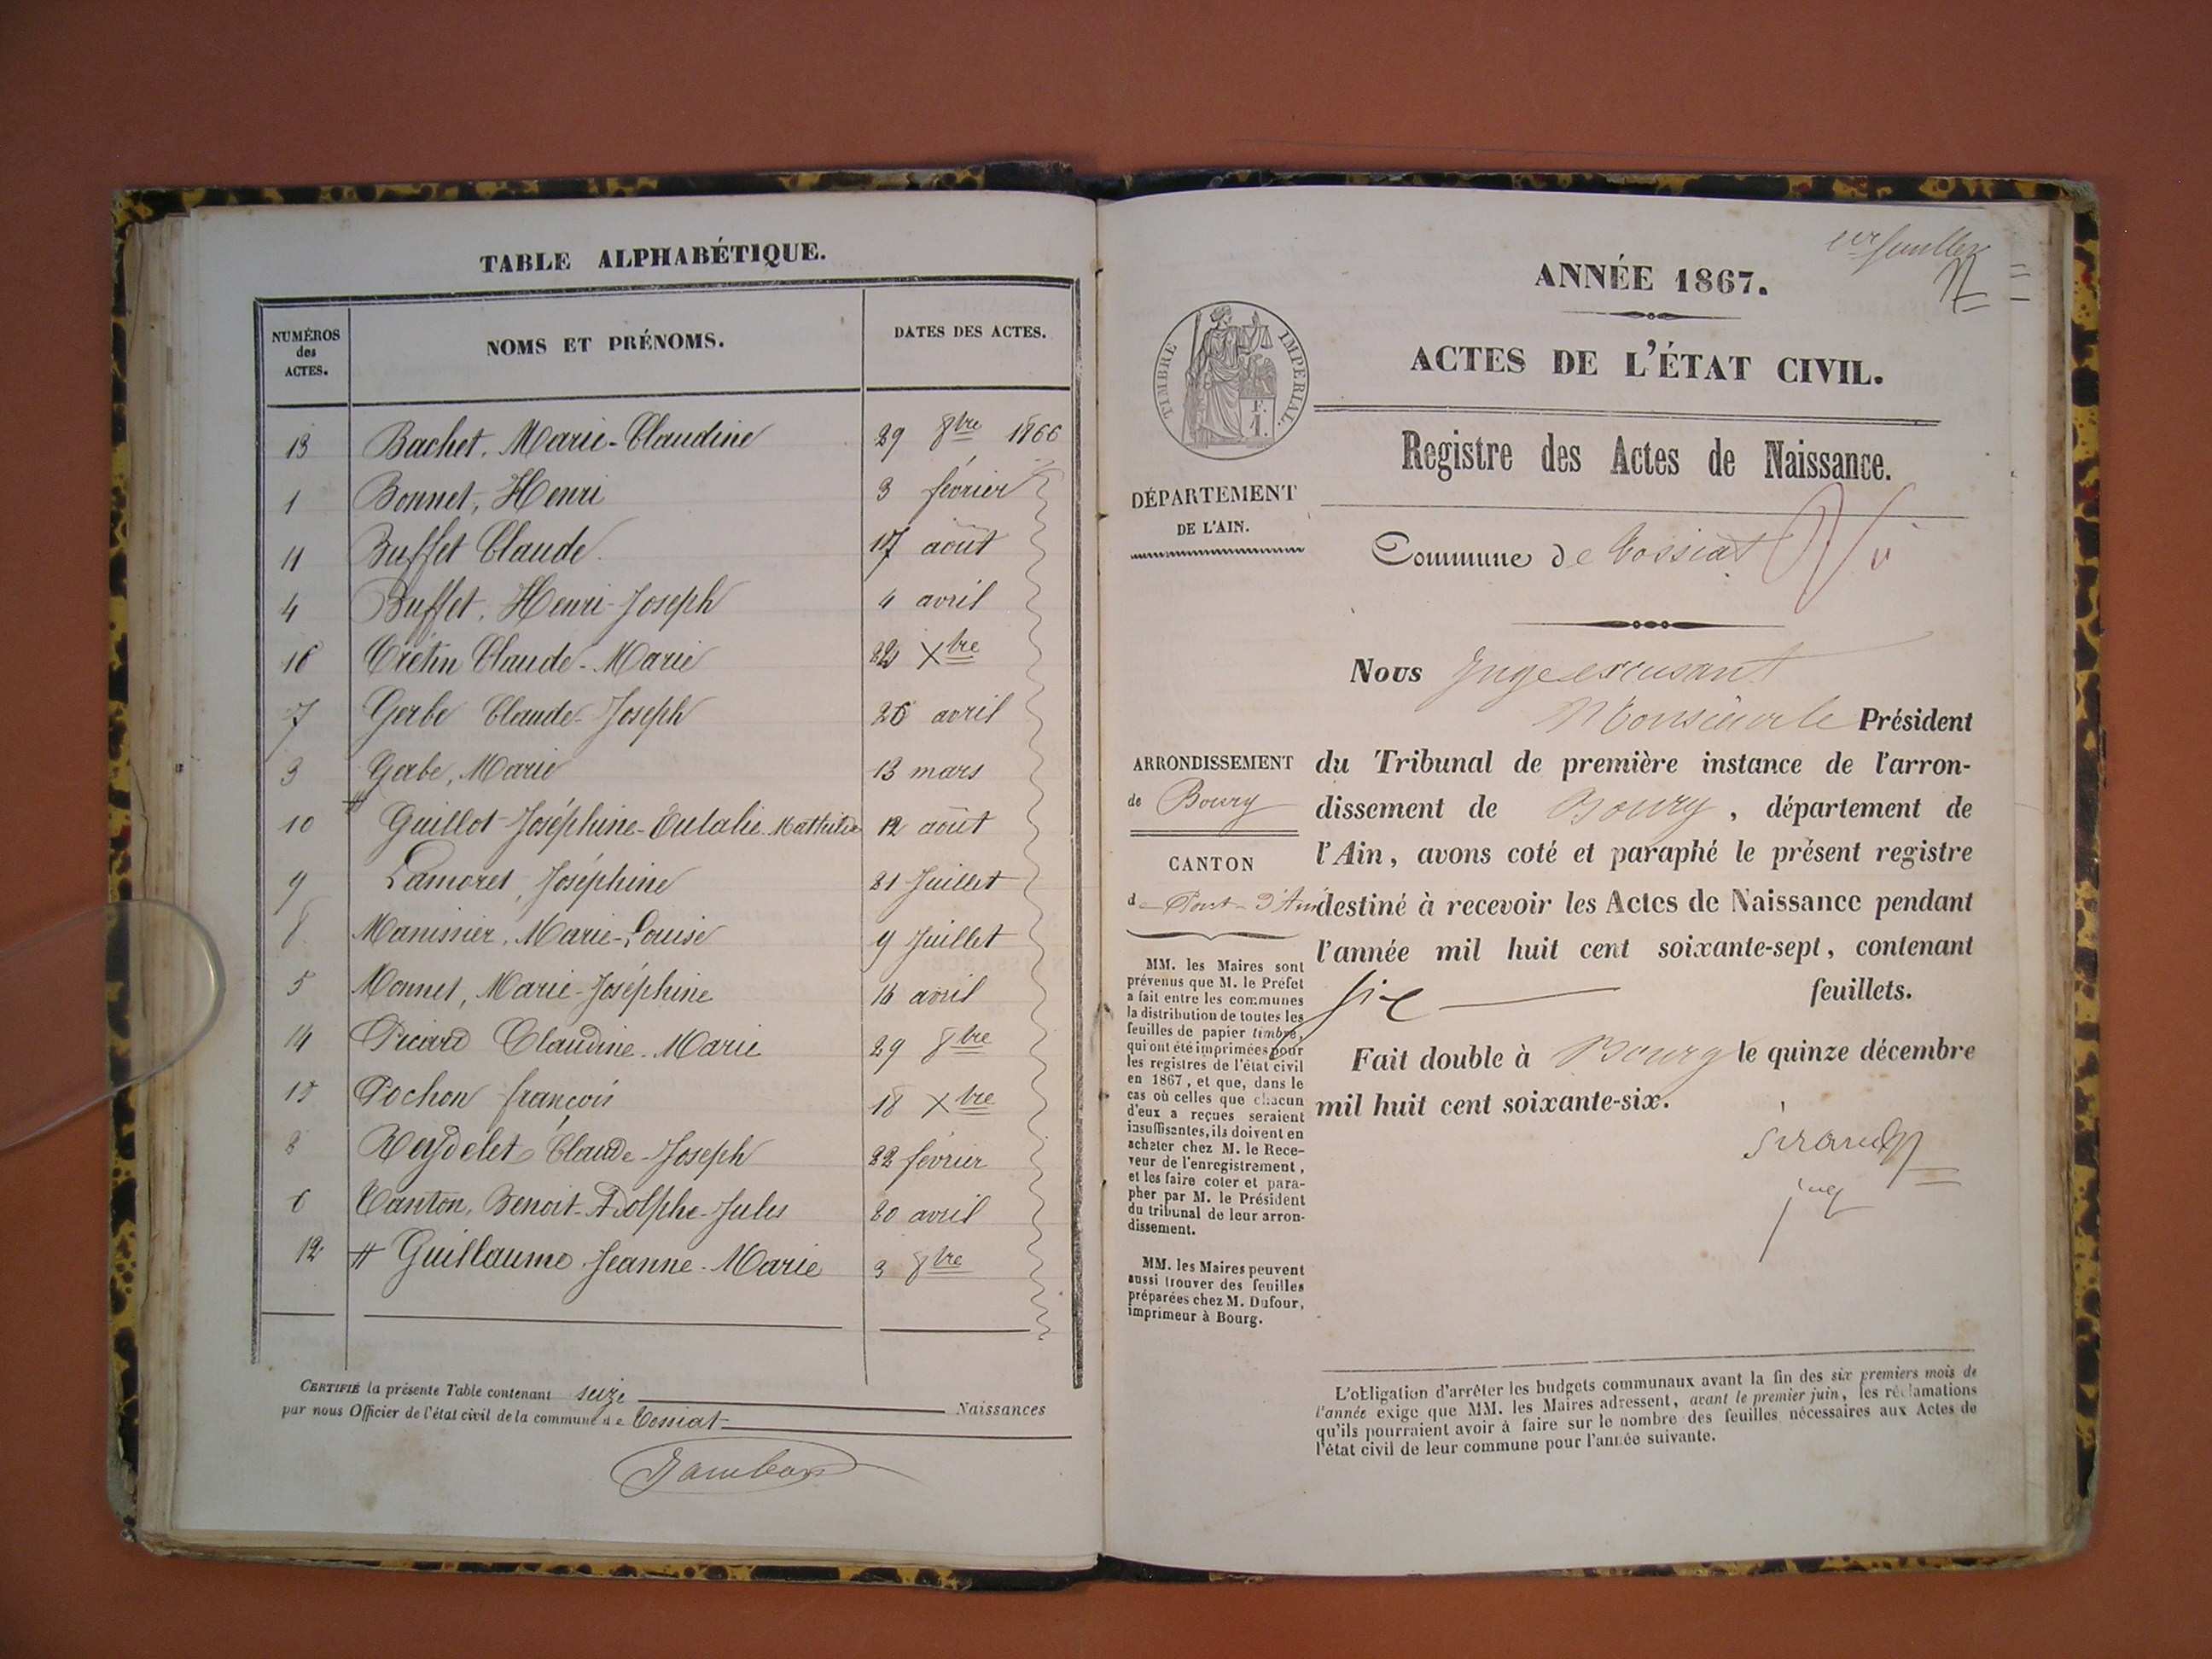 TABLE ALPHABÉTIQUE.
NUMÉROS des ACTES. NOMS ET PRÉNOMS. DATES DES ACTES.
13 Bachet, Marie-Claudine 29 8bre 1866
1 Bonnet, Henri 3 février
11 Buffet Claude 17 août
4 Buffet, Henri-Joseph 4 avril
16 Crétin Claude-Marie 22 Xbre
7 Gerbe Claude-Joseph 26 avril
3 Gerbe, Marie 13 mars
10 # Guillot Joséphine-Eulalie Mathilde 12 août
9 Lamoret, Joséphine 21 Juillet
8 Manissier, Marie-Louise 9 Juillet
5 Monnet, Marie-Joséphine 16 avril
14 Picard Claudine-Marie 29 8bre
15 Pochon françois 18 Xbre
2 Reydelet Claude-Joseph 22 février
6 Tanton, Benoit-Adolphe-Jules 20 avril
12 # Guillaume Jeanne-Marie 3 8bre
CERTIFIÉ la présente Table contenant seize Naissances
par nous Officier de l'état civil de la commune de Tossiat
ANNÉE 1867.
ACTES DE L'ÉTAT CIVIL.
TIMBRE IMPÉRIAL.
Registre des Actes de Naissance.
DÉPARTEMENT
DE L'AIN.
Commune de Tossiat
Vu
Nous Juge excusant
Monsieur le Président
ARRONDISSEMENT
de Bourg
CANTON
de Pont-d'Ain
du Tribunal de première instance de l'arron-
dissement de Bourg, département de
l'Ain, avons coté et paraphé le présent registre
destiné à recevoir les Actes de Naissance pendant
l'année mil huit cent soixante-sept, contenant
six feuillets.
Fait double à Bourg le quinze décembre
mil huit cent soixante-six.
MM. les Maires sont
prévenus que M. le Préfet
a fait entre les communes
la distribution de toutes les
feuilles de papier timbré,
qui ont été imprimées pour
les registres de l'état civil
en 1867, et que, dans le
cas où celles que chacun
d'eux a reçues seraient
insuffisantes, ils doivent en
acheter chez M. le Rece-
veur de l'enregistrement,
et les faire coter et para-
pher par M. le Président
du tribunal de leur arron-
dissement.
MM. les Maires peuvent
aussi trouver des feuilles
préparées chez M. Dufour,
imprimeur à Bourg.
L'obligation d'arrêter les budgets communaux avant la fin des six premiers mois de
l'année exige que MM. les Maires adressent, avant le premier juin, les réclamations
qu'ils pourraient avoir à faire sur le nombre des feuilles nécessaires aux Actes de
l'état civil de leur commune pour l'année suivante.